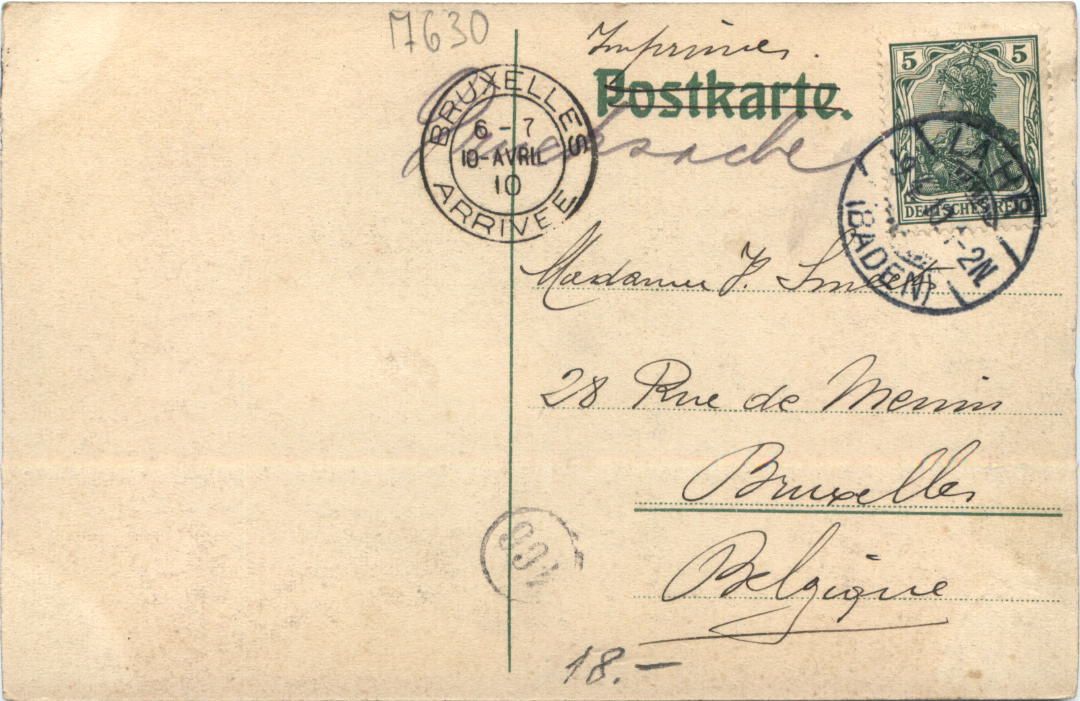 M630
Imprimés.
Postkarte.
Drucksache
BRUXELLES
6 - 7
10-AVRIL
10
ARRIVEE
5 5
DEUTSCHES REICH
LAHR
1-2N
(BADEN)
Madame J. Smets
28 Rue de Menin
Bruxelles
Belgique
18.-